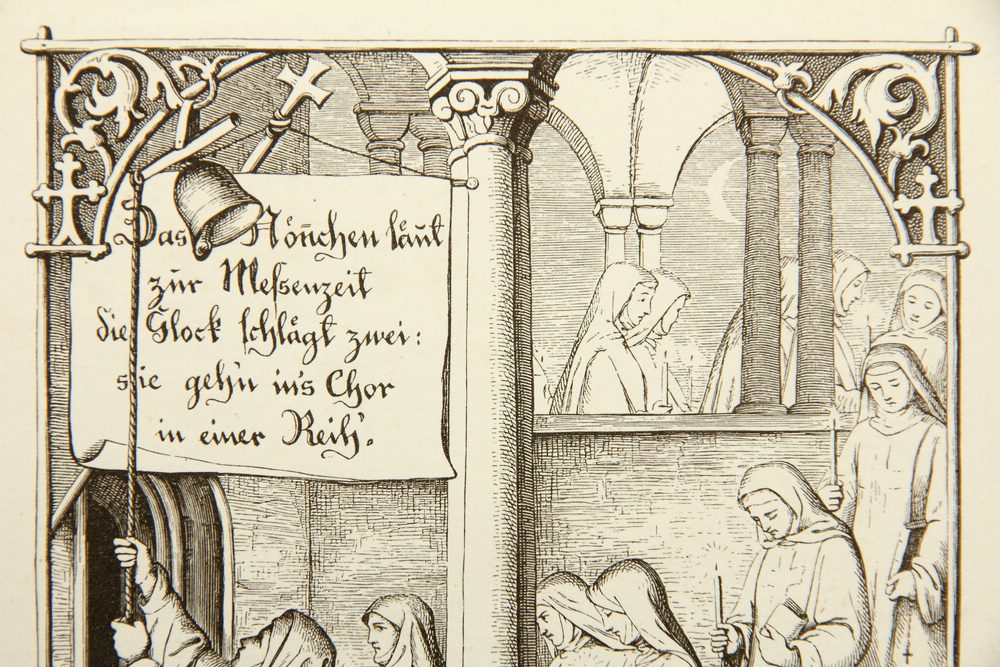 Das Nönnchen läut
zur Messenzeit
die Glock schlägt zwei:
sie gehn in's Chor
in einer Reih'.